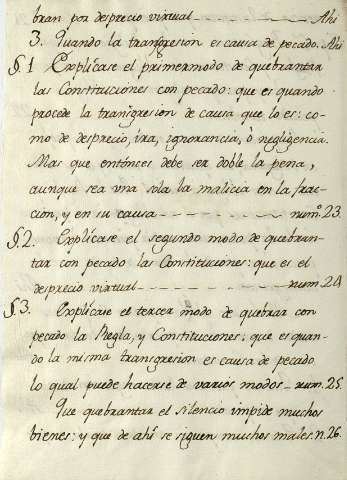 bran por desprecio virtual ——— Ahi
3. Quando la transgresion es causa de pecado. Ahi
§.1 Explícase el primer modo de quebrantar
las Constituciones con pecado: que es quando
procede la transgresion de causa que lo es: co-
mo de desprecio, ira, ignorancia, ò negligencia.
Mas que entónces debe ser doble la pena,
aunque sea una sola la malicia en la frac-
cion, y en su causa ——— numº. 23.
§.2. Explícase el segundo modo de quebran-
tar con pecado las Constituciones: que es el
desprecio virtual ——— num. 24
§.3. Explícase el tercer modo de quebrar con
pecado la Regla, y Constituciones; que es quan-
do la misma transgresion es causa de pecado,
lo qual puede hacerse de varios modos — num. 25.
Que quebrantar el silencio impide muchos
bienes: y que de ahí se siguen muchos males. n. 26.